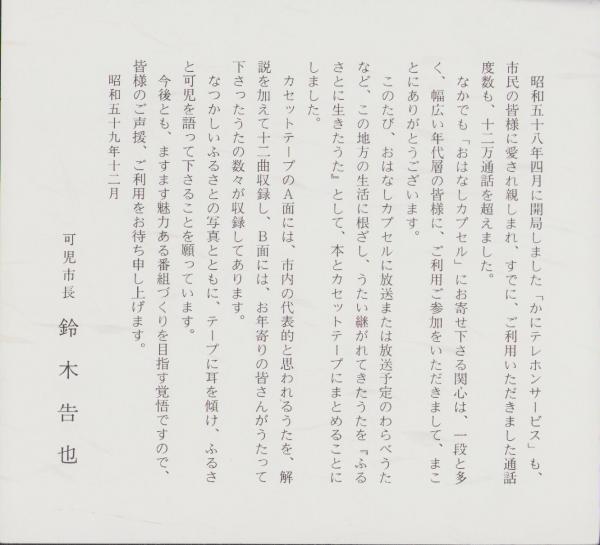 昭和五十八年四月に開局しました「かにテレホンサービス」も、
市民の皆様に愛され親しまれ、すでに、ご利用いただきました通話
度数も、十二万通話を超えました。
なかでも「おはなしカプセル」にお寄せ下さる関心は、一段と多
く、幅広い年代層の皆様に、ご利用ご参加をいただきまして、まこ
とにありがとうございます。
このたび、おはなしカプセルに放送または放送予定のわらべうた
など、この地方の生活に根ざし、うたい継がれてきたうたを『ふる
さとに生きたうた』として、本とカセットテープにまとめることに
しました。
カセットテープのA面には、市内の代表的と思われるうたを、解
説を加えて十二曲収録し、B面には、お年寄りの皆さんがうたって
下さったうたの数々が収録してあります。
なつかしいふるさとの写真とともに、テープに耳を傾け、ふるさ
と可児を語って下さることを願っています。
今後とも、ますます魅力ある番組づくりを目指す覚悟ですので、
皆様のご声援、ご利用をお待ち申し上げます。
昭和五十九年十二月
可児市長 鈴木告也